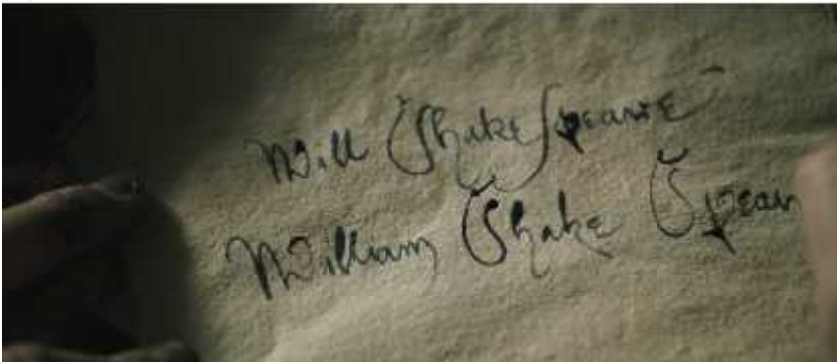 Will Shakeſpeare
William Shake Spear